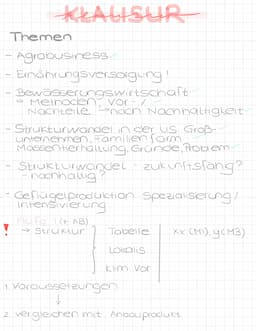 KLAUSUR
Themen
- Agrobusiness
- Ernährungsversorgung!
- Bewässerungswirtschaft
→ Methoden, Vor- /
Nachteile → nach Nachhaltigkeit
- Strukturwandel in der US Groß-
unternehmen, Familienfarm
Massentierhaltung, Gründe, Problem
- Strukturwandel - zukunftsfähig?
- nachhaltig?
- Geflügelproduktion Spezialisierung/
Intensivierung
! Aufg. 1 (+ AB)
→ Struktur } Tabelle | xx (M1), y(M3)
Lokalis
Klim Vor
1. Voraussetzungen
↓
2. vergleichen mit Anbauprodukt